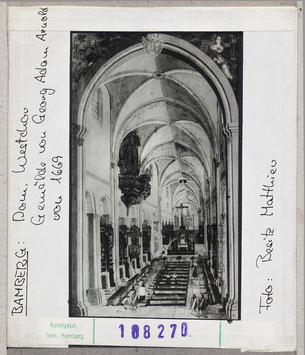 BAMBERG: Dom, Westchor
Gemälde von Georg Adam Arnold
von 1669
Foto: Beeitz Matthieu
Kunstgesch.
Sem. Hamburg
108270